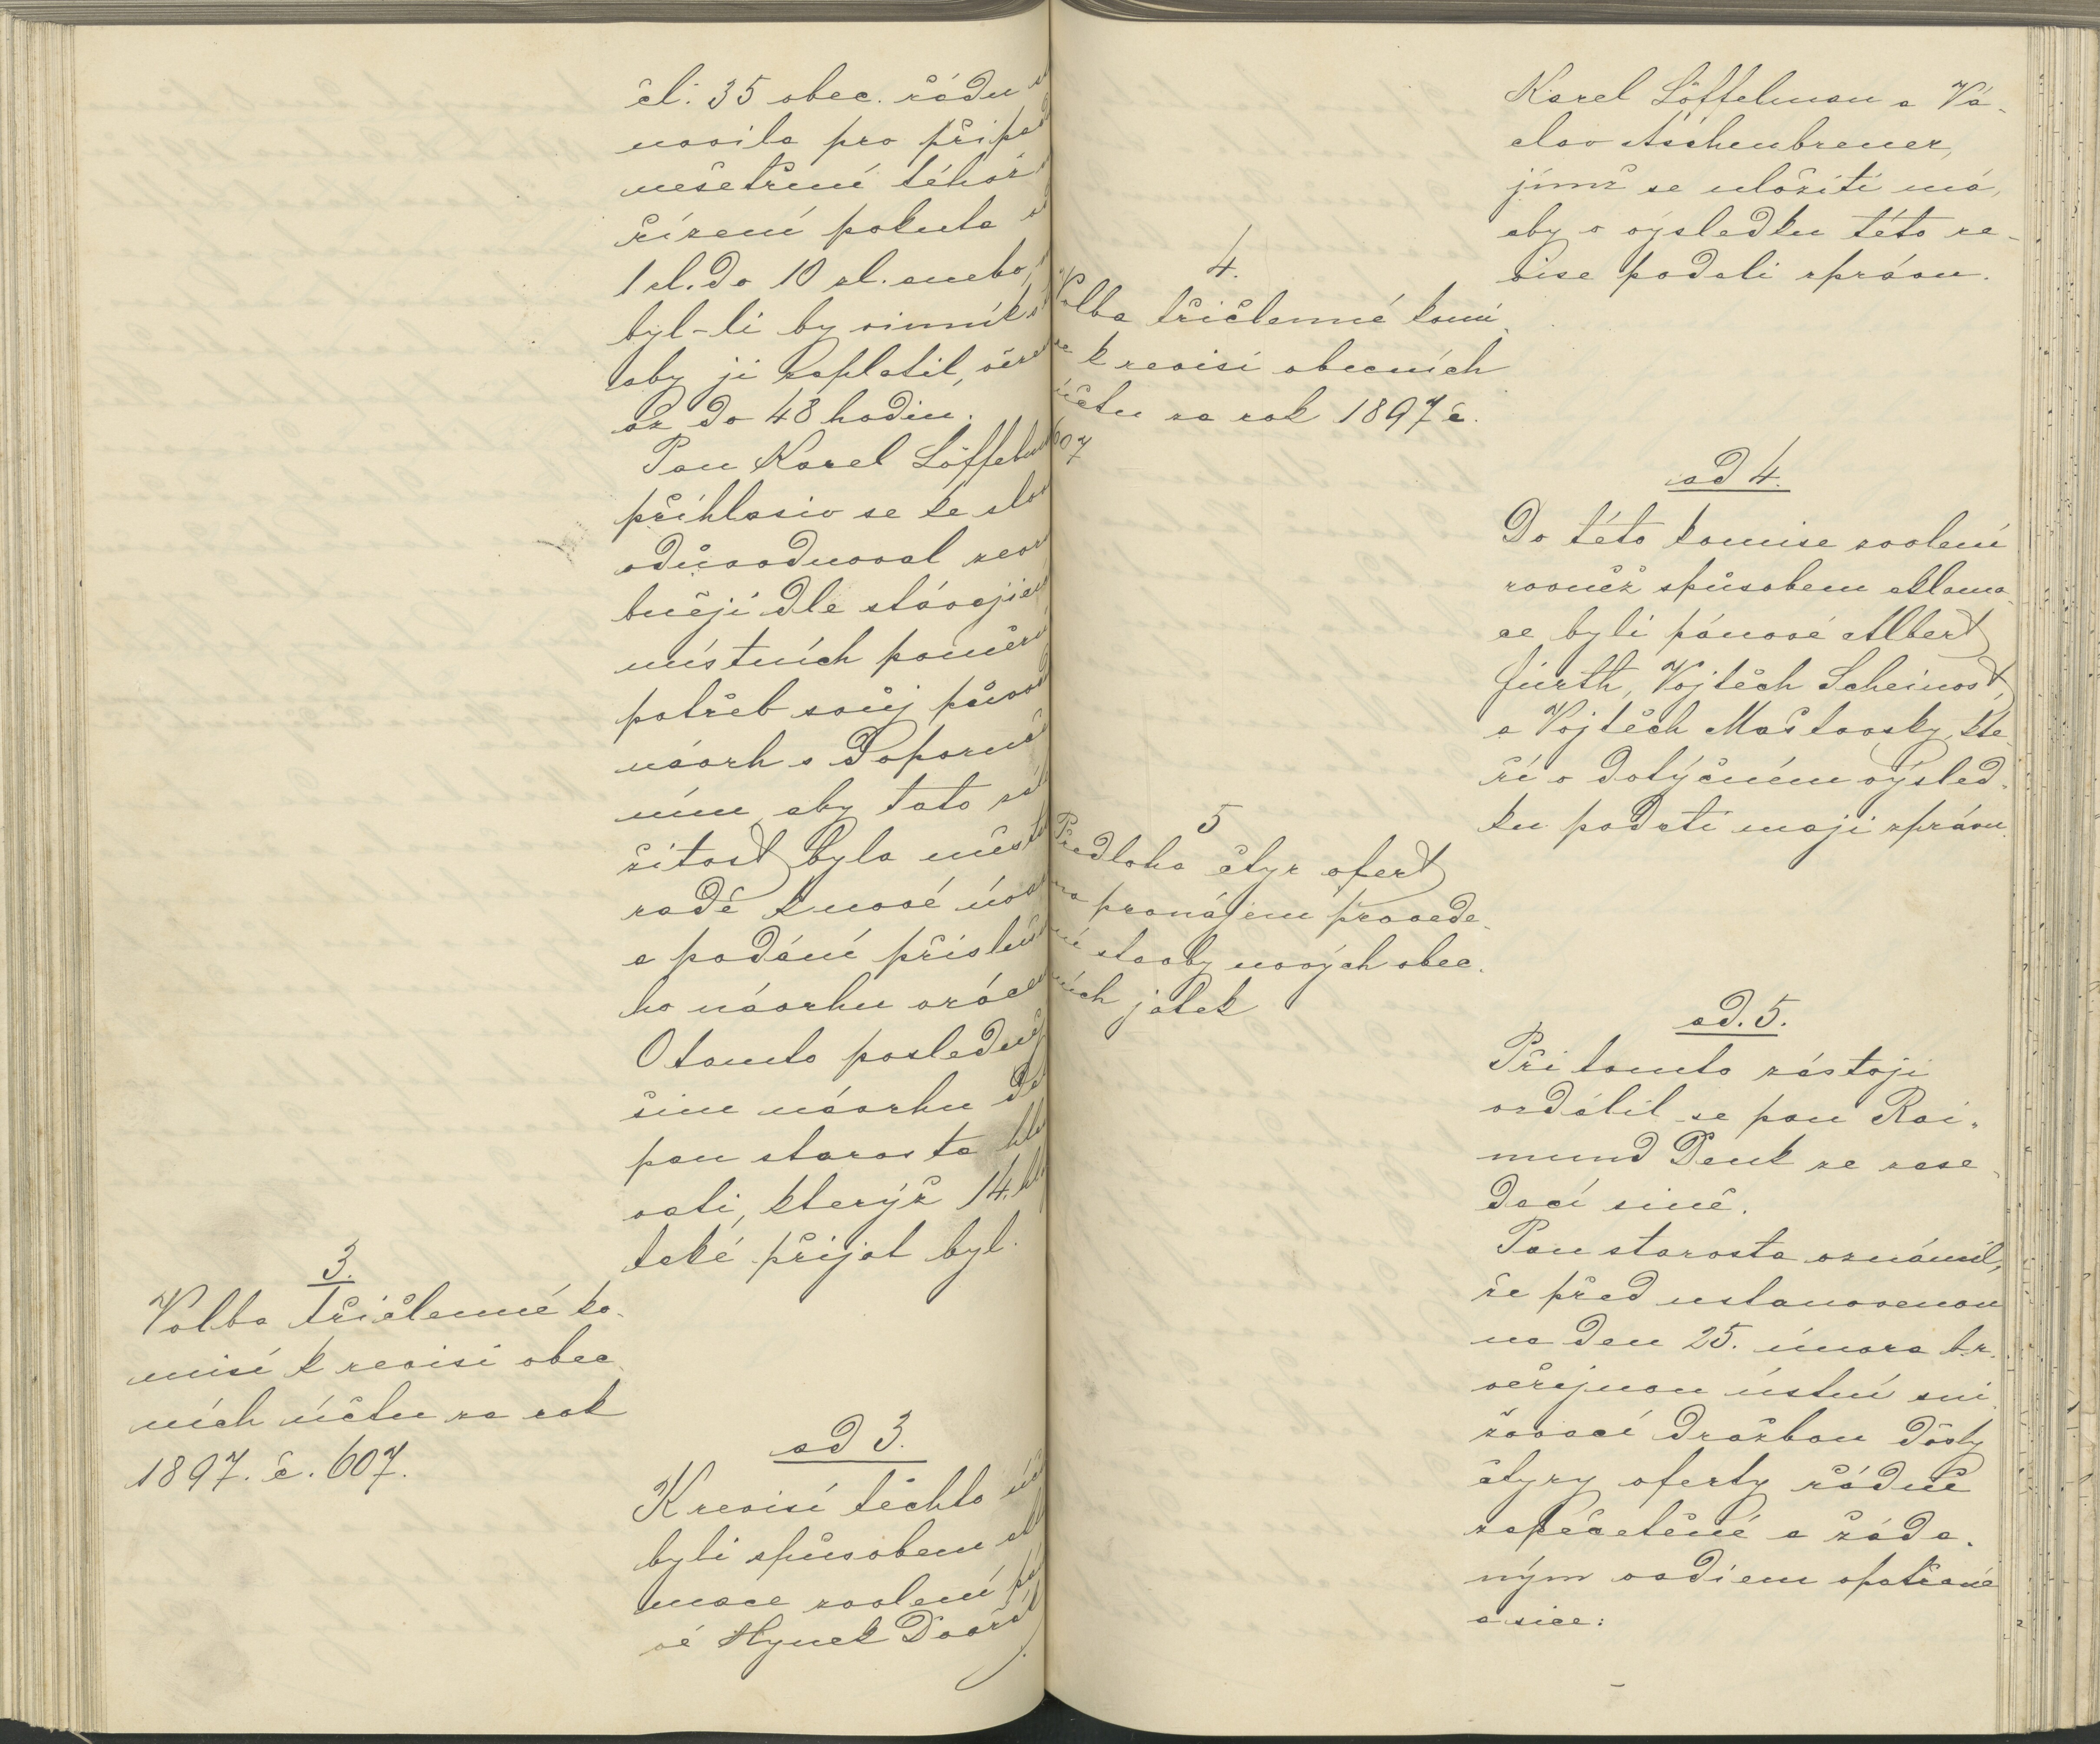 čl. 35 obec. řádu
novila pro případ
nešetření téhož
řízení pokuta
1 zl. do 10 zl. anebo,
byl-li by vinník
aby ji zaplatil, věze
až do 48 hodin.
Pan Karel Löffelm
přihlasiv se ke slov
odůvodnoval zevr
bněji dle stávajíc
místních poměrů
potřeb svůj původ
návrh s Doporuče
ním, aby tato zál
žitost byla měst
radě k nové úva
a podání přísluš
ho návrhu vráce
O tomto posledněj
ším návrhu dal
pan starosta hla
vati, kterýž 14. hl
také přijat byl.
3.
Volba tříčlenné ko-
misí k revisi obec-
ních účtu za rok
1897. č. 607.
ad 3.
K revisí těchto úč
byli spůsobem akl
mace zvoleni pá
vé Hynek Dvořák
4.
Volba tříčlenné komi-
se k revisi obecních
účtu za rok 1897 č.
607
5
Předloha čtyr ofert
na pronájem provede-
ní stavby nových obec-
ních jatek
Karel Löffelman a Vá-
clav Aschenbrener,
jimž se uložiti má,
aby o výsledku této re-
vise podali zprávu.
ad 4.
Do této komise zvoleni
rovněž spůsobem aklama-
ce byli pánové Albert
Fürth, Vojtěch Scheinost,
a Vojtěch Maštovsky, kte-
ří o dotýčném výsled-
ku podati maji zprávu.
ad. 5.
Při tomto zástoji
vzdálil se pan Rai-
mund Denk ze zase-
dací síně.
Pan starosta oznámil,
že před ustanovenou
na den 25. února b.r.
veřejnou ústní sni-
žovací dražbou došly
čtyry oferty řádně
zapečetěné a žáda-
ným vadiem opatřené
a sice: